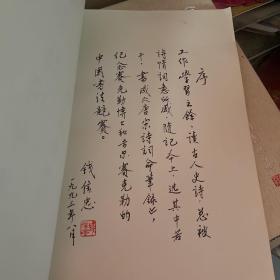 序
工作学习之余，读古人史诗，总被
诗情词意所感，随记本上，选其中若
干，书成《唐宋诗词命笔录》，
纪念赛克勒博士和首届赛克勒的
中国书法竞赛。
钱倚忠
一九九三年八月